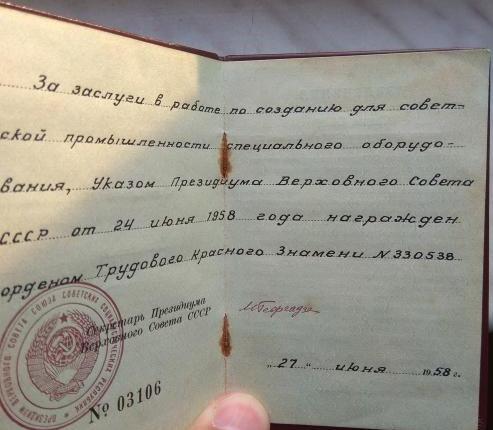 За заслуги в работе по созданию для совет-
ской промышленности специального оборудо-
вания, Указом Президиума Верховного Совета
СССР от 24 июня 1958 года награжден
орденом Трудового Красного Знамени N 330538
Секретарь Президиума
Верховного Совета СССР
М. Георгадзе
„27“ июня 1958 г.
№ 03106
ПРЕЗИДИУМ ВЕРХОВНОГО СОВЕТА СОЮЗА СОВЕТСКИХ СОЦИАЛИСТИЧЕСКИХ РЕСПУБЛИК